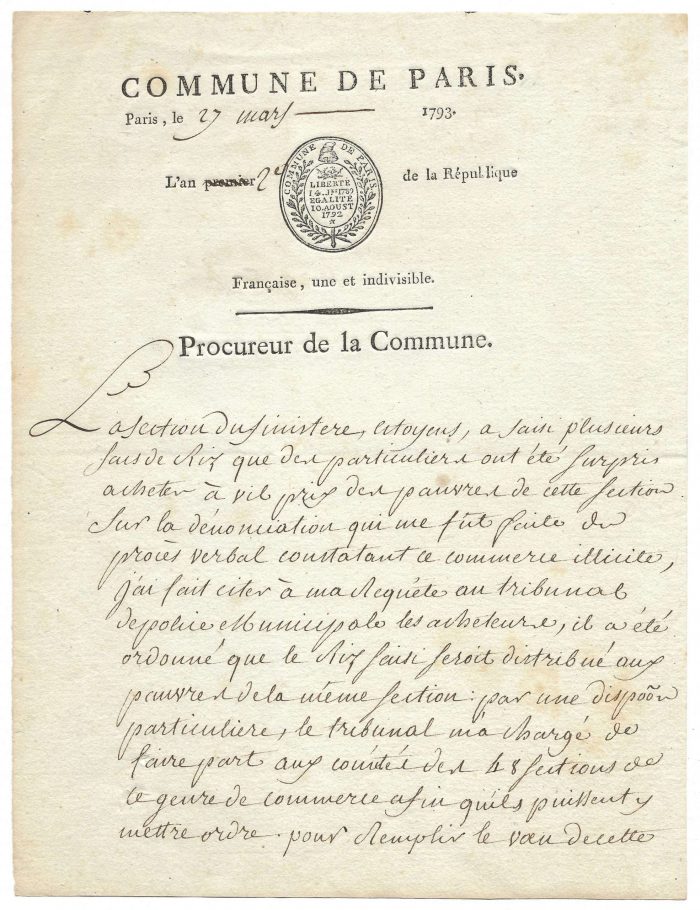 COMMUNE DE PARIS.
Paris, le 27 mars 1793.
COMMUNE DE PARIS
L'an premier 2e de la République
LIBERTÉ
14 JET 1789
EGALITÉ
10 AOUST
1792
Française, une et indivisible.
Procureur de la Commune.
La section du finistere, citoyens, a saisi plusieurs
sacs de Riz que des particuliers ont été surpris
acheter à vil prix des pauvres de cette section
sur la dénonciation qui me fût faite du
procès verbal constatant ce commerce illicite,
j'ai fait citer à ma Requête au tribunal
de police Municipale les acheteurs, il a été
ordonné que le Riz saisi seroit distribué aux
pauvres de la même section : par une dispõõn
particuliere, le tribunal m'a chargé de
faire part aux comités des 48 sections de
ce genre de commerce afin qu'ils puissent y
mettre ordre. pour Remplir le vœu de cette